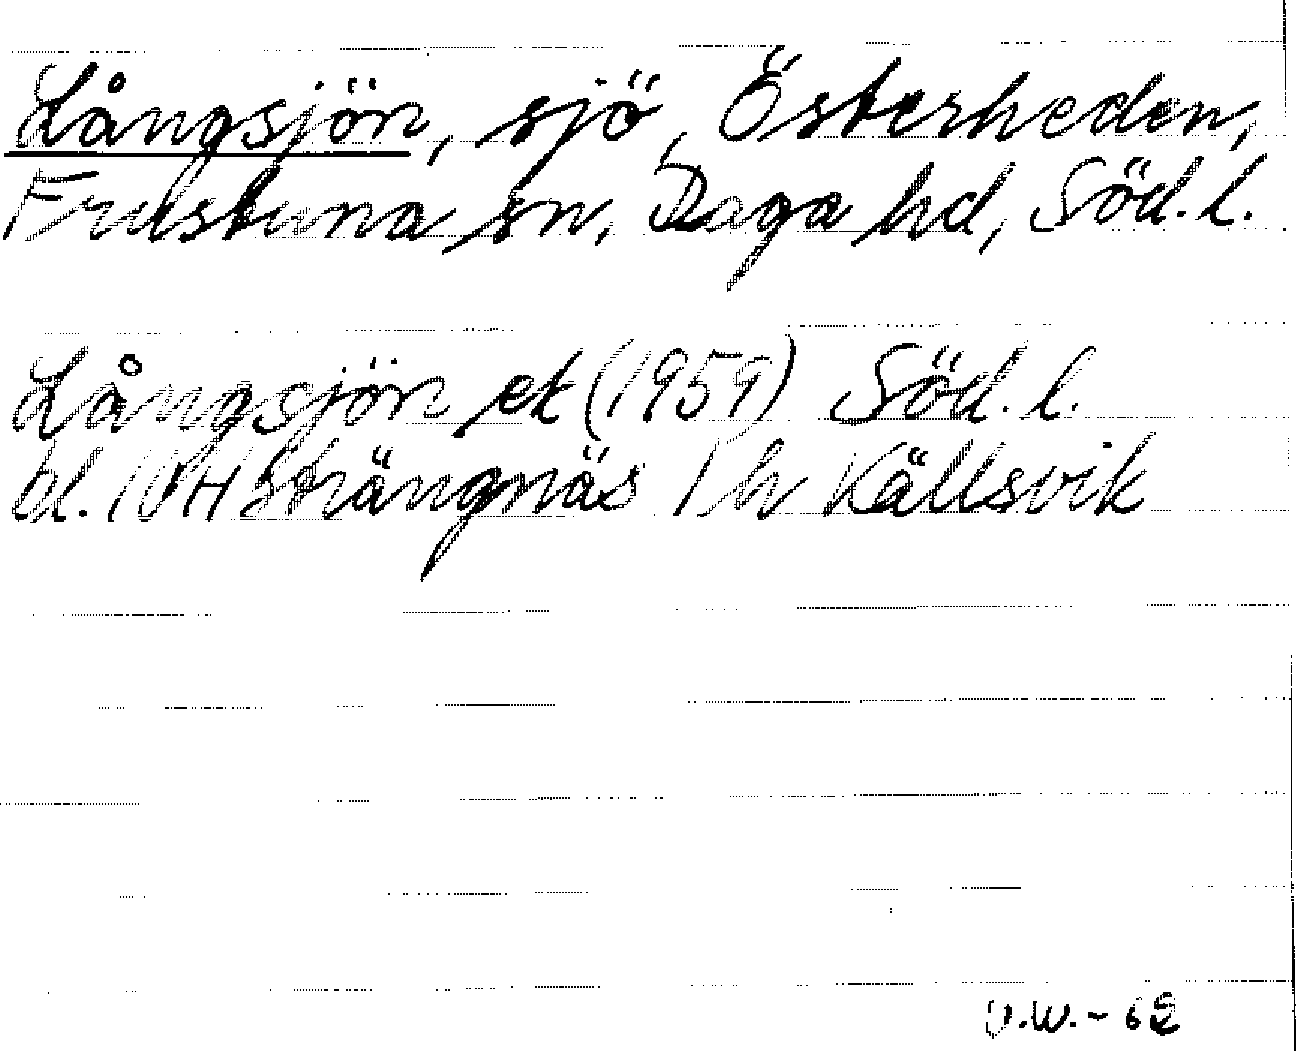 Långsjön, sjö, Österheden,
Frustuna sn, Daga hd, Söd. l.
Långsjön ek (1959) Söd. l.
bl. 10H Strängnäs 1 h Källsvik
-62